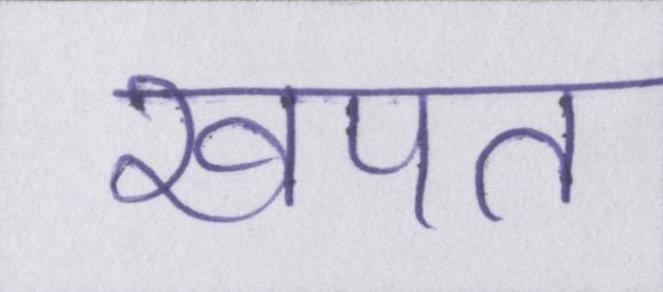 खपत